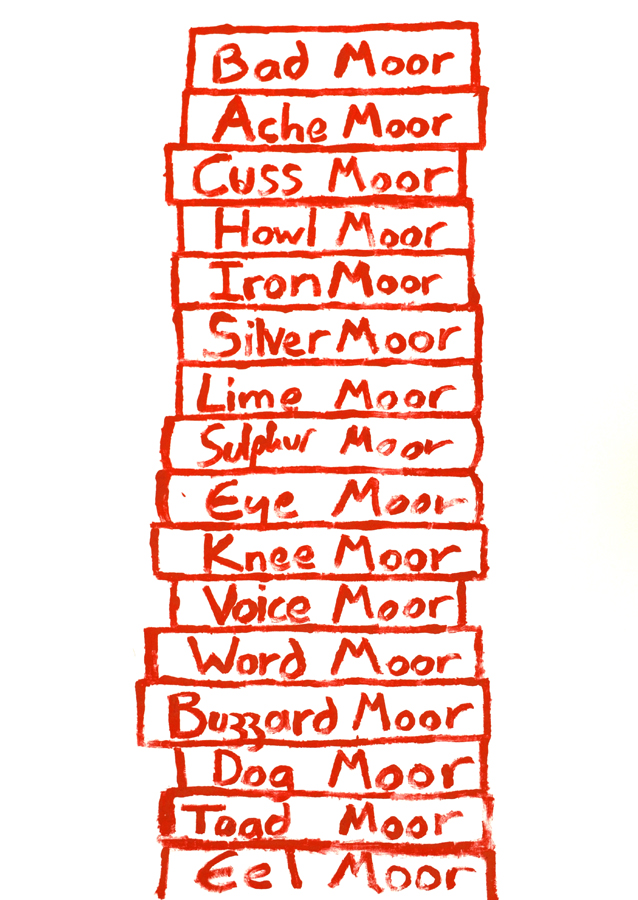 Bad Moor
Ache Moor
Cuss Moor
Howl Moor
Iron Moor
Silver Moor
Lime Moor
Sulphur Moor
Eye Moor
Knee Moor
Voice Moor
Word Moor
Buzzard Moor
Dog Moor
Toad Moor
Eel Moor